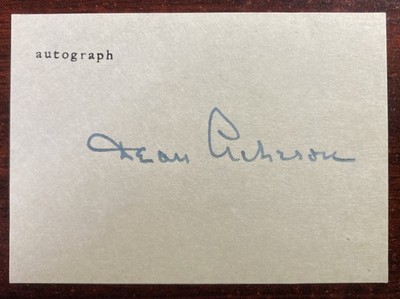 autograph
Dean Acheson